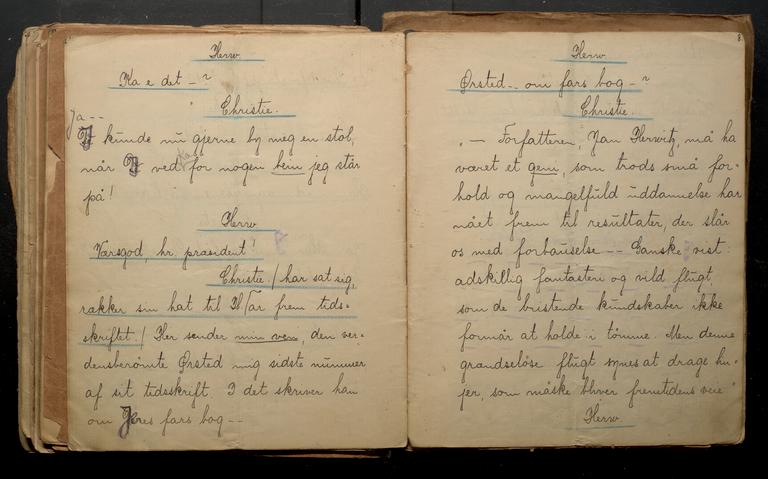 Herw.
Ka e det – ?
Christie.
Ja – –
I kunde nu gjerne by meg en stol,
når I ved for nogen bein jeg står
på!
Herw
Værsgod, hr. præsident!
Christie. / har sat sig,
rækker sin hat til H/Tar frem tids-
skriftet. / Her sender min ven, den ver-
densberömte Ørsted mig sidste nummer
af sit tidsskrift. I det skriver han
om Jeres fars bog – –
8
Herw.
Ørsted – – om fars bog – ?
Christie.
„ – Forfatteren, Jan Herwitz, må ha
været et geni, som trods små for-
hold og mangelfuld uddannelse har
nået frem til resultater, der slår
os med forbauselse – – Ganske vist:
adskillig fantasteri og vild flugt,
som de bristende kundskaber ikke
formår at holde i tömme. Men denne
grændselöse flugt synes at drage hu-
jer, som måske bliver fremtidens veie"
Herw.